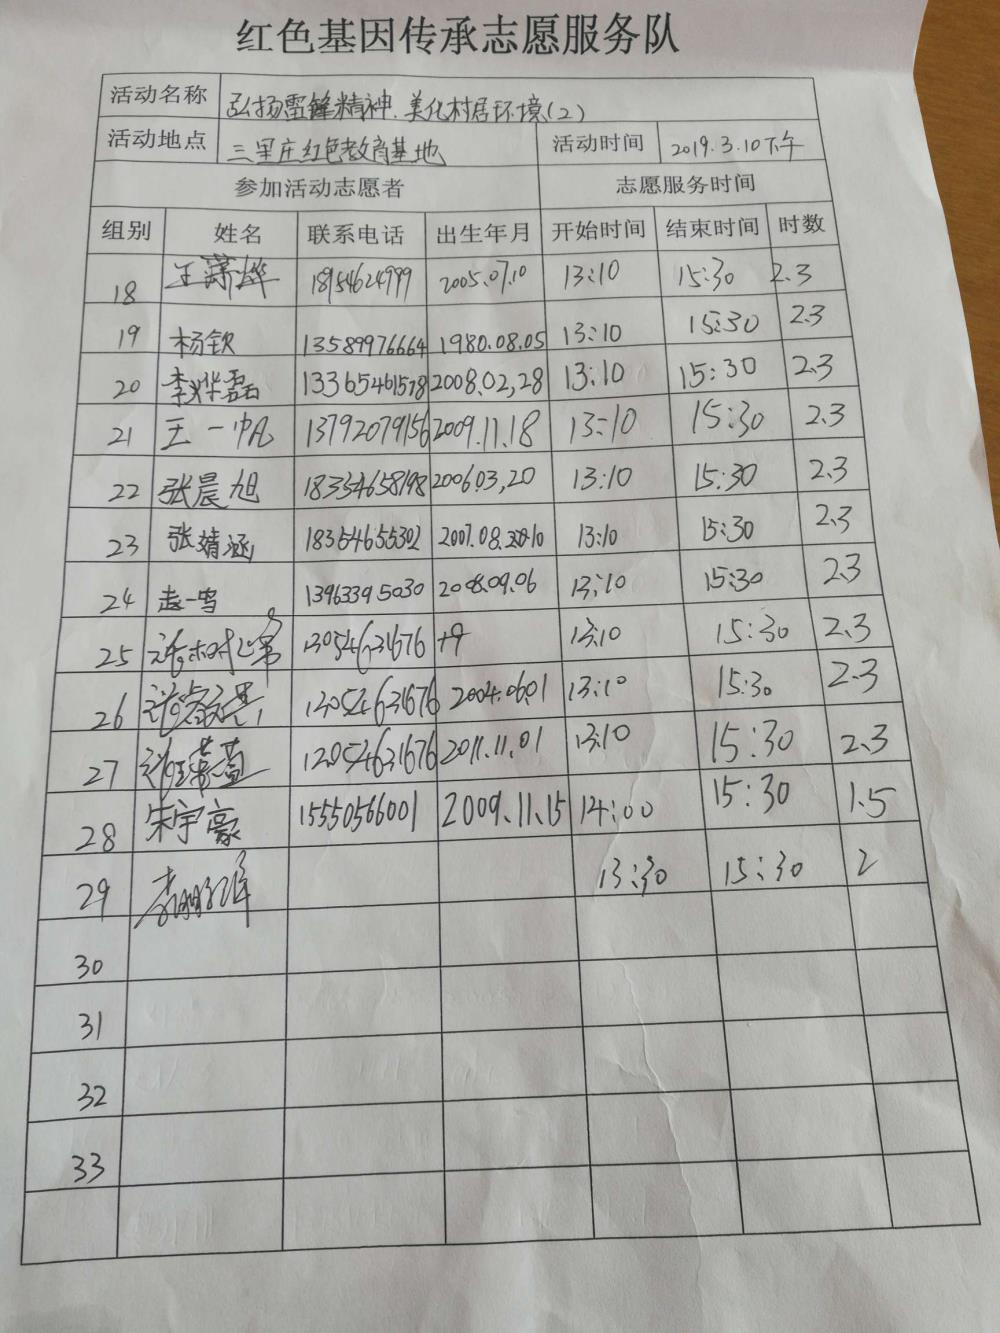 红色基因传承志愿服务队
活动名称 弘扬雷锋精神.美化村居环境(2)
活动地点 三里庄红色教育基地 活动时间 2019.3.10下午
参加活动志愿者 志愿服务时间
组别 姓名 联系电话 出生年月 开始时间 结束时间 时数
18 王潇烨 18954624999 2005.07.10 13:10 15:30 2.3
19 杨钦 13589976664 1980.08.05 13:10 15:30 2.3
20 李烨磊 13365461578 2008.02,28 13:10 15:30 2.3
21 王一帆 13792079156 2009.11.18 13:10 15:30 2.3
22 张晨旭 18354658198 200603,20 13:10 15:30 2.3
23 张婧涵 18354655302 2007.08. 13:10 15:30 2.3
24 赵一鸣 13963395030 2008.09.06 13:10 15:30 2.3
25 13054631676 13:10 15:30 2.3
26 13054631676 2004.0601 13:10 15:30 2.3
27 13054631676 2011.11.01 13:10 15:30 2.3
28 宋宇豪 15550566001 2009.11.15 14:00 15:30 1.5
29 13:30 15:30 2
30
31
32
33